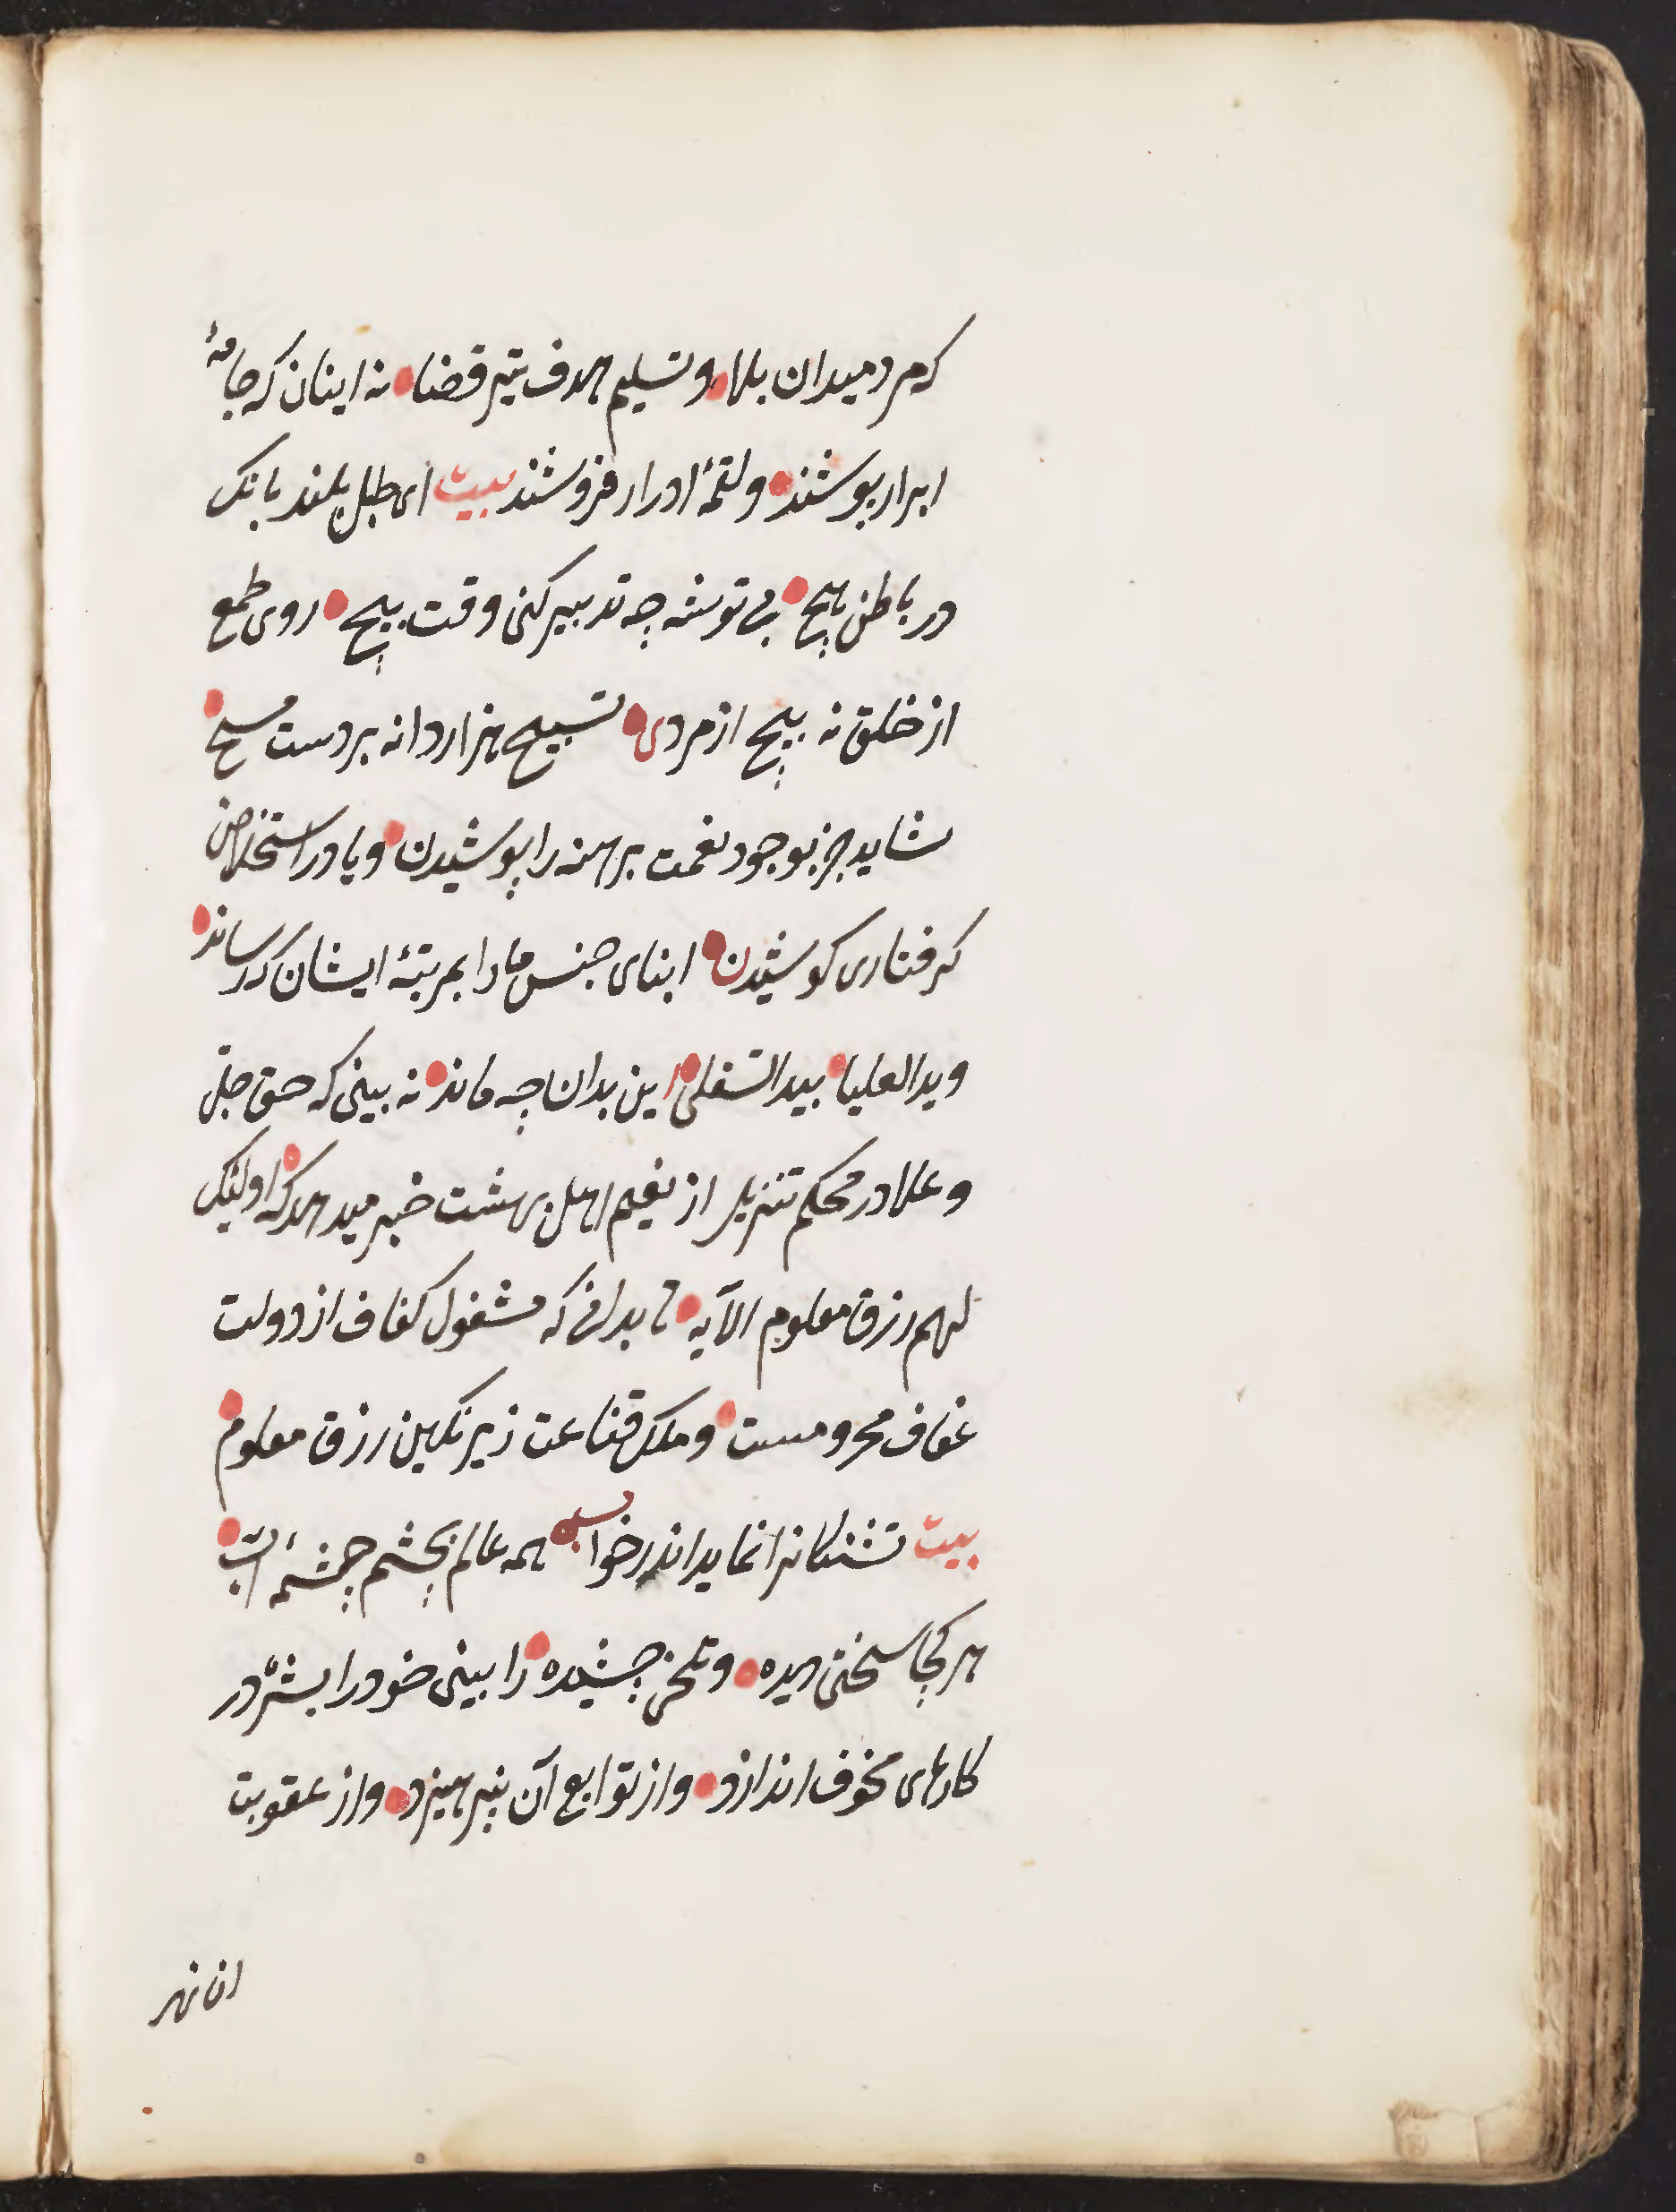 که مرد میدان بلا و تسلیم هدف تیر قضا نه اینان که جامهٔ
ابرار پوشند و لقمهٔ ادرار فروشند بیت ای طبل بلند بانک
در باطن هیچ بی توشه چه تدبیر کنی وقت پیچ روی طمع
از خلق نه پیچ از مردی تسبیح هزار دانه بر دست مسیح
نشاید جز بوجود نعمت برهنه را پوشیدن و یا در استخلاص
کرفتاری کوشیدن ابنای جنس ما را بمرتبهٔ ایشان که رساند
وید العلیا بید السفلی این بدان چه ماند نه بینی که حق جل
و علا در محکم تنزیل از نعیم اهل بهشت خبر میدهد که اولئک
لهم رزق معلوم الآیه تا بدانی که مشغول کفاف از دولت
عفاف محرومست و ملک قناعت زیر نکین رزق معلوم
بیت تشنکانرا نماید اندر خواب همه عالم بچشم چشمهٔ آب
هر کجا سختی دیده و تلخی چشیده را بینی خود را بشره در
کارهای مخوف اندازد و از توابع آن نپرهیزد و از عقوبت
ان نهر